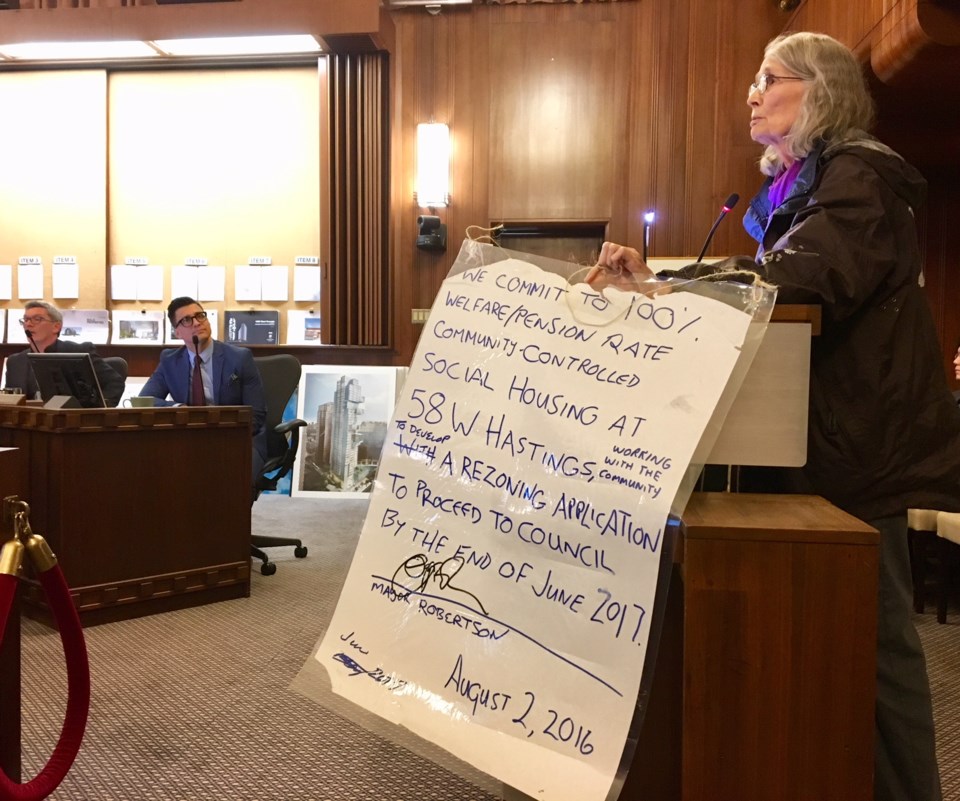 ITEM 5
ITEM 6
ITEM 7
ITEM 8
WE COMMIT TO 100%
WELFARE/PENSION RATE
COMMUNITY-CONTROLLED
SOCIAL HOUSING AT
58 W HASTINGS, WORKING WITH THE COMMUNITY
TO DEVELOP
WITH A REZONING APPLICATION
TO PROCEED TO COUNCIL
BY THE END OF JUNE 2017.
MAYOR ROBERTSON
AUGUST 2, 2016